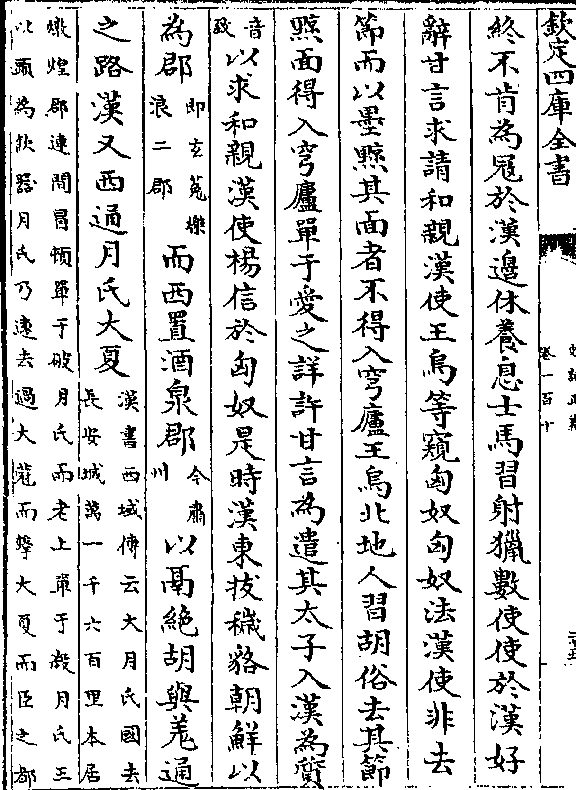 欽定四庫全書
史記正義
卷一百十
終不肯為冦於漢邊休養息士馬習射獵數使使於漢好
辭甘言求請和親漢使王烏等窺匈奴匈奴法漢使非去
節而以墨黥其面者不得入穹廬王烏北地人習胡俗去其節
黥面得入穹廬單于愛之詳許甘言為遣其太子入漢為質
音致以求和親漢使楊信於匈奴是時漢東拔穢貉朝鮮以
為郡即玄菟樂浪二郡而西置酒泉郡今肅州以鬲絶胡與羌通
之路漢又西通月氏大夏漢書西域傳云大月氏國去長安城萬一千六百里本居
燉煌郡連間冒頓單于破月氏而老上單于殺月氏王
以頭為飲器月氏乃逺去過大宛而擊大夏而臣之都